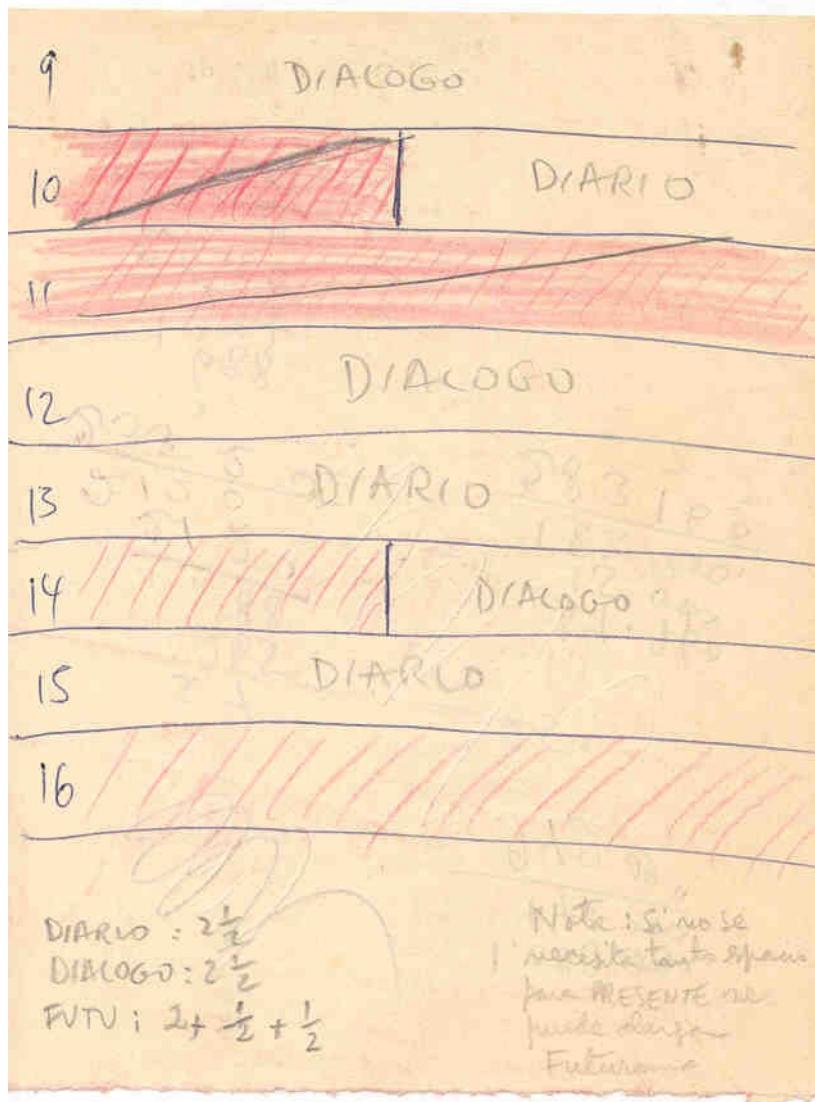 9 DIALOGO
10 DIARIO
11
12 DIALOGO
13 DIARIO
14 DIALOGO
15 DIARIO
16
DIARIO : 2 1/2
DIALOGO : 2 1/2
FUTU : 2 + 1/2 + 1/2
Nota : si no se
necesita tanto espacio
para PRESENTE se
puede alargar
Futurama